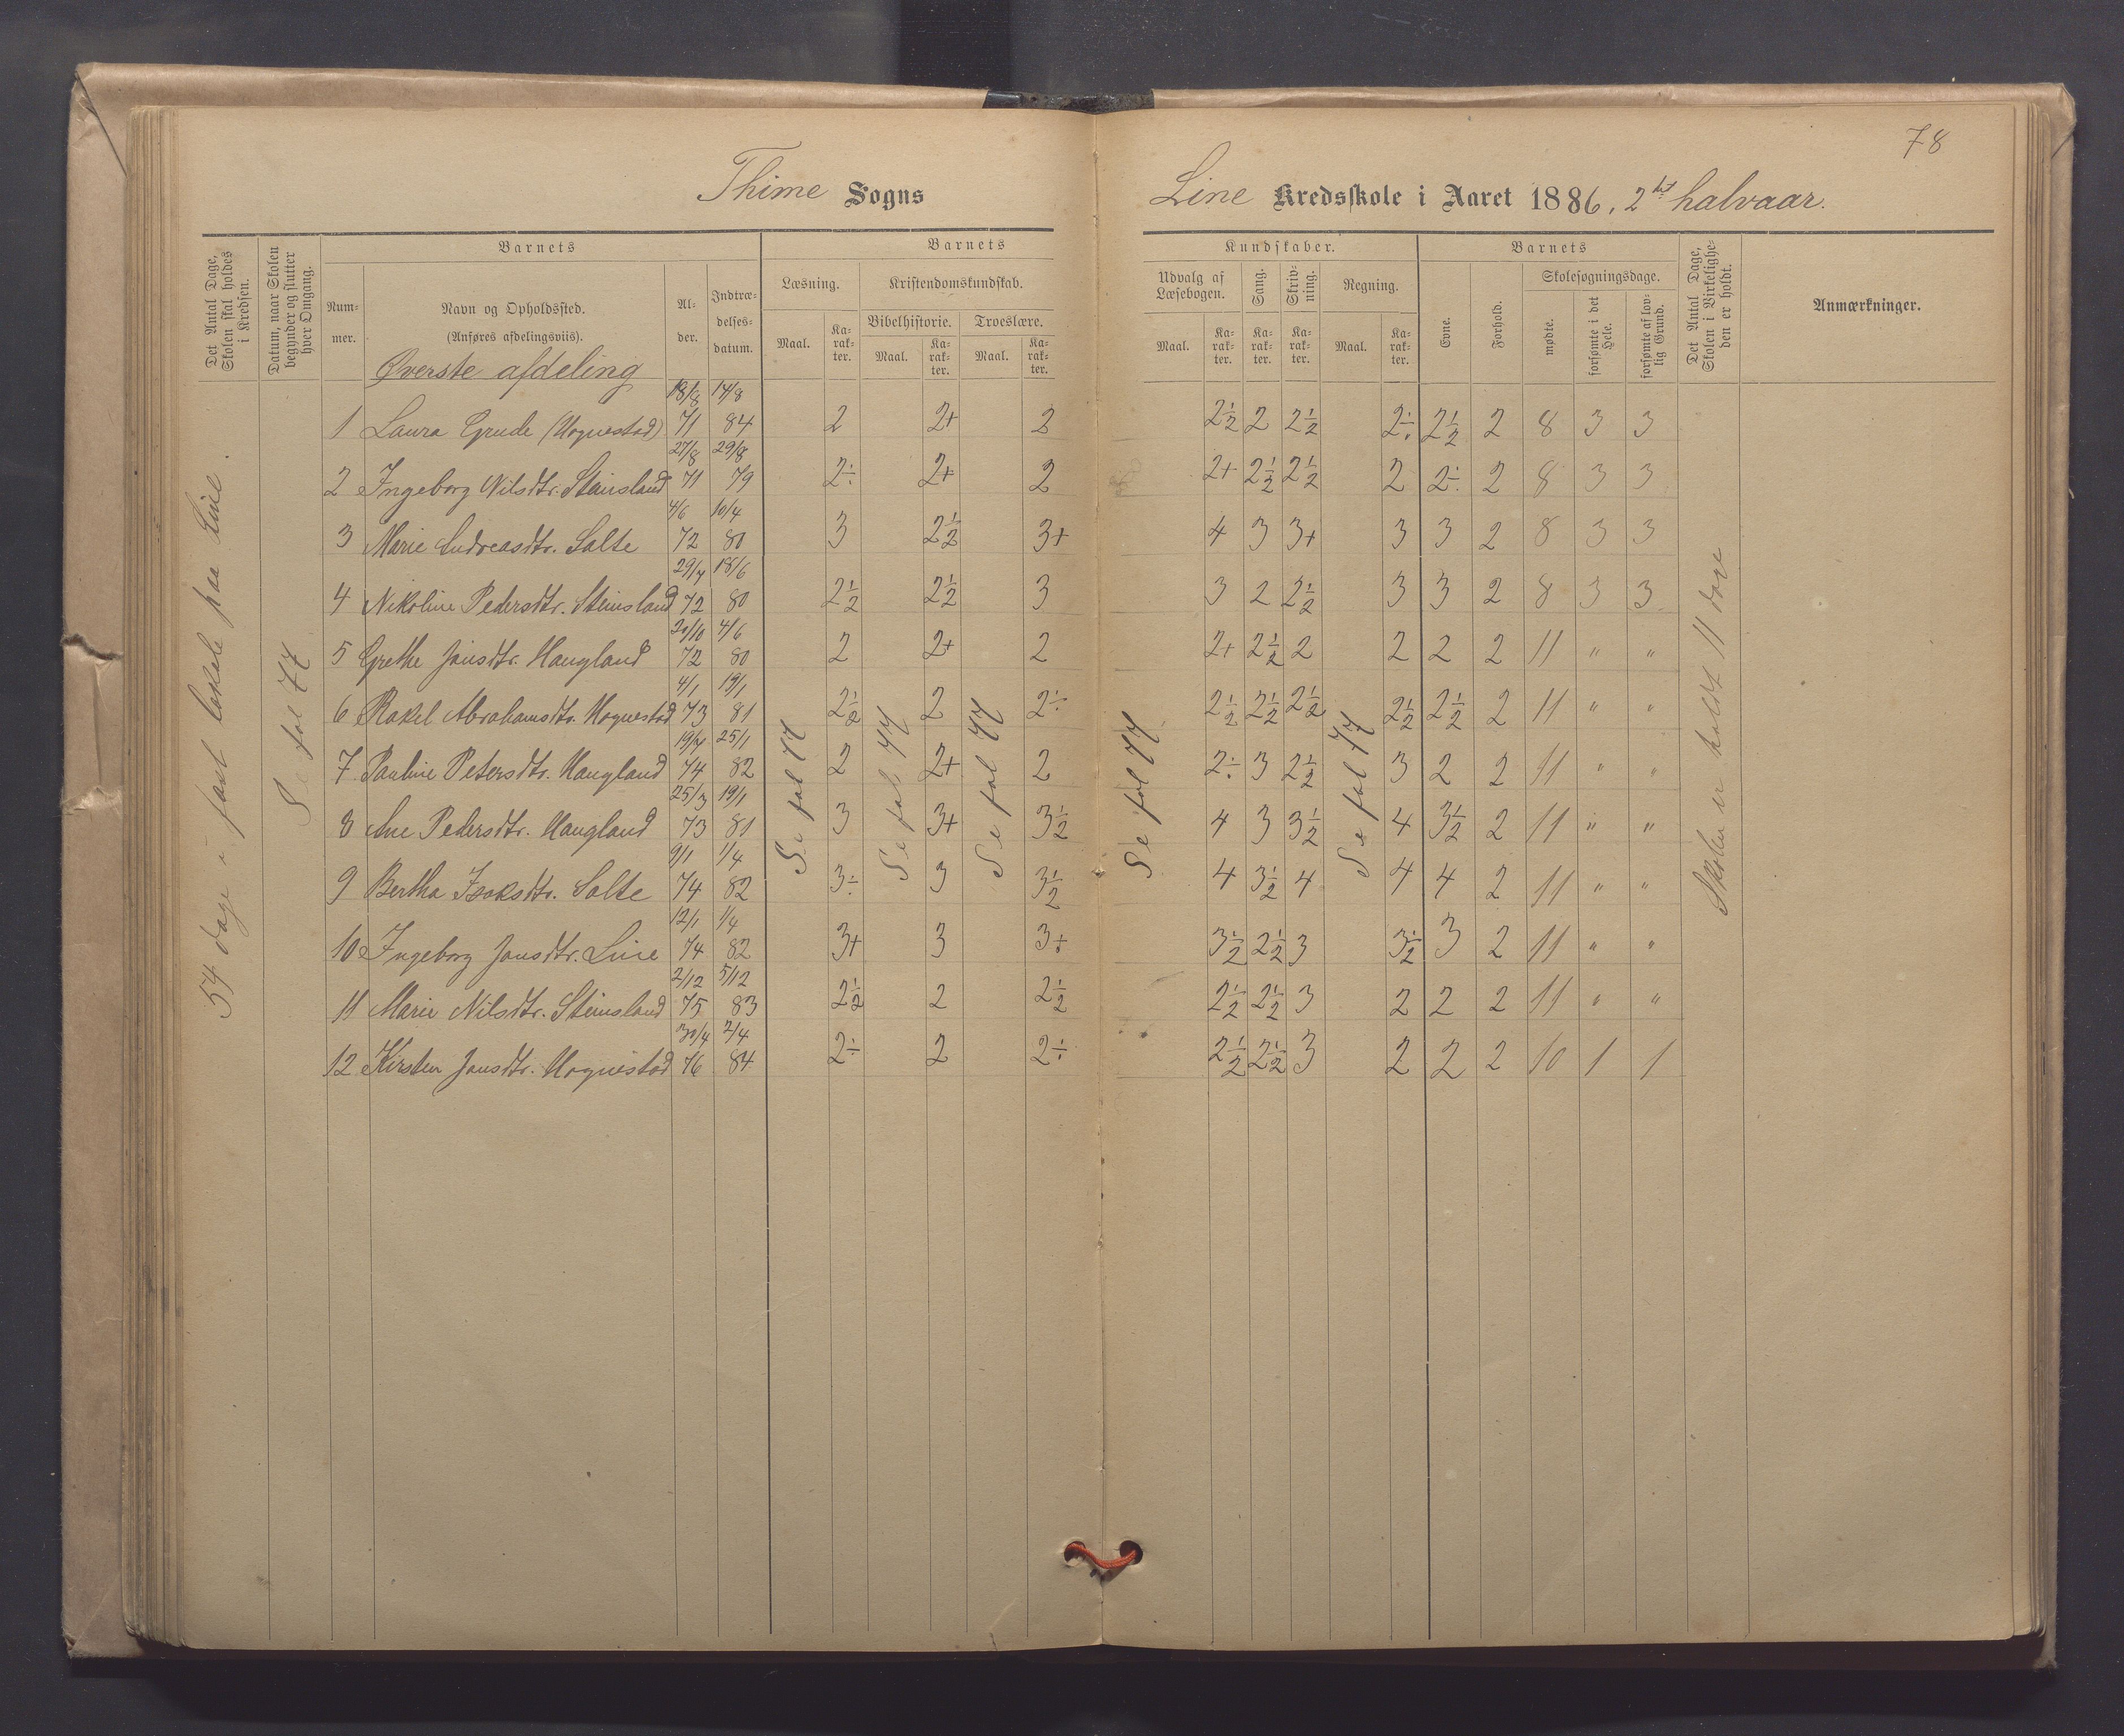 78
Thime Sogns
Line Kredsskole i Aaret 1886, 2det halvaar.
Det Antal Dage, Skolen skal holdes i Kredsen.
Datum, naar Skolen begynder og slutter hver Omgang.
Barnets
Nummer.
Navn og Opholdssted.
(Anføres afdelingsviis).
Alder.
Indtrædelsesdatum.
Barnets
Læsning.
Maal.
Karakter.
Kristendomskundskab.
Bibelhistorie.
Maal.
Karakter.
Troeslære.
Maal.
Karakter.
Kundskaber.
Udvalg af Læsebogen.
Maal.
Karakter.
Sang.
Karakter.
Skrivning.
Karakter.
Regning.
Maal.
Karakter.
Barnets
Evne.
Forhold.
Skolesøgningsdage.
mødte.
forsømte i det Hele.
forsømte af lovlig Grund.
Det Antal Dage, Skolen i Virkeligheden er holdt.
Anmærkninger.
Øverste afdeling
54 dage i fast lokale paa Line.
Se fol 77
Se fol 77
Se fol 77
Se fol 77
Se fol 77
Se fol 77
Skolen er holdt 11 dage
1 Laura Grude (Hognestad) 18/8 71 14/8 84 2 2+ 2 2½ 2 2½ 2÷ 2½ 2 8 3 3
2 Ingeborg Nilsdtr. Stensland 27/8 71 29/8 79 2÷ 2+ 2 2+ 2½ 2½ 2 2÷ 2 8 3 3
3 Marie Andreasdtr. Salte 4/6 72 10/4 80 3 2½ 3+ 4 3 3+ 3 3 2 8 3 3
4 Nikoline Pedersdtr. Stensland 29/7 72 18/6 80 2½ 2½ 3 3 2 2½ 3 3 2 8 3 3
5 Grethe Jansdtr. Haugland 20/10 72 4/6 80 2 2+ 2 2+ 2½ 2 2 2 2 11 " "
6 Rakel Abrahamsdtr. Hognestad 4/1 73 19/1 81 2½ 2 2÷ 2½ 2½ 2½ 2½ 2½ 2 11 " "
7 Pauline Petersdtr. Haugland 19/7 74 25/1 82 2 2+ 2 2÷ 3 2½ 3 2 2 11 " "
8 Ane Pedersdtr. Haugland 25/3 73 19/1 81 3 3+ 3½ 4 3 3½ 4 3½ 2 11 " "
9 Bertha Isaksdtr. Salte 9/1 74 1/4 82 3÷ 3 3½ 4 3½ 4 4 4 2 11 " "
10 Ingeborg Jansdtr. Line 12/1 74 1/4 82 3+ 3 3+ 3½ 2½ 3 3½ 3 2 11 " "
11 Marie Nilsdtr. Stensland 2/12 75 5/12 83 2½ 2 2½ 2½ 2½ 3 2 2 2 11 " "
12 Kirsten Jansdtr. Hognestad 30/4 76 2/4 84 2÷ 2 2÷ 2½ 2½ 3 2 2 2 10 1 1